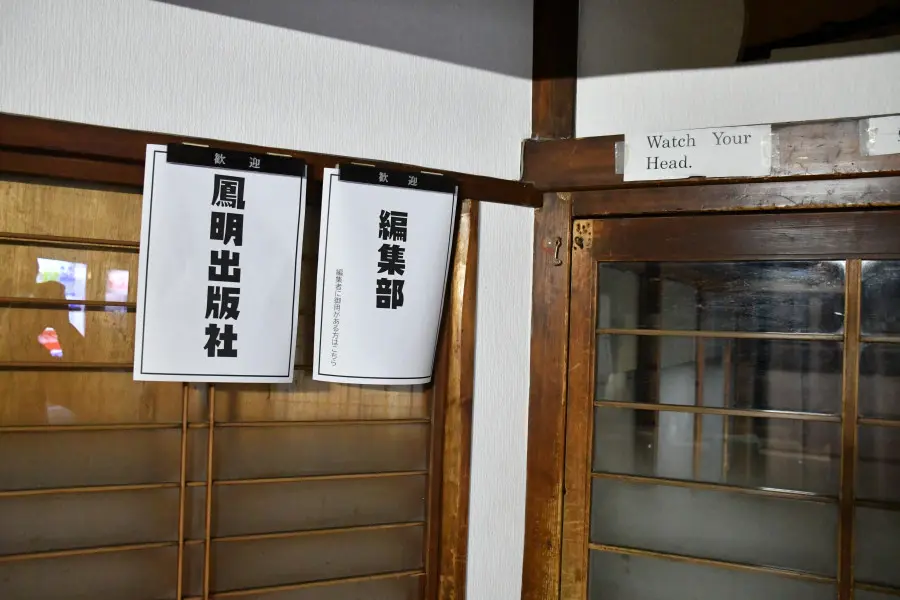 歓迎
鳳明出版社
歓迎
編集部
編集者に御用がある方はこちら
Watch Your
Head.